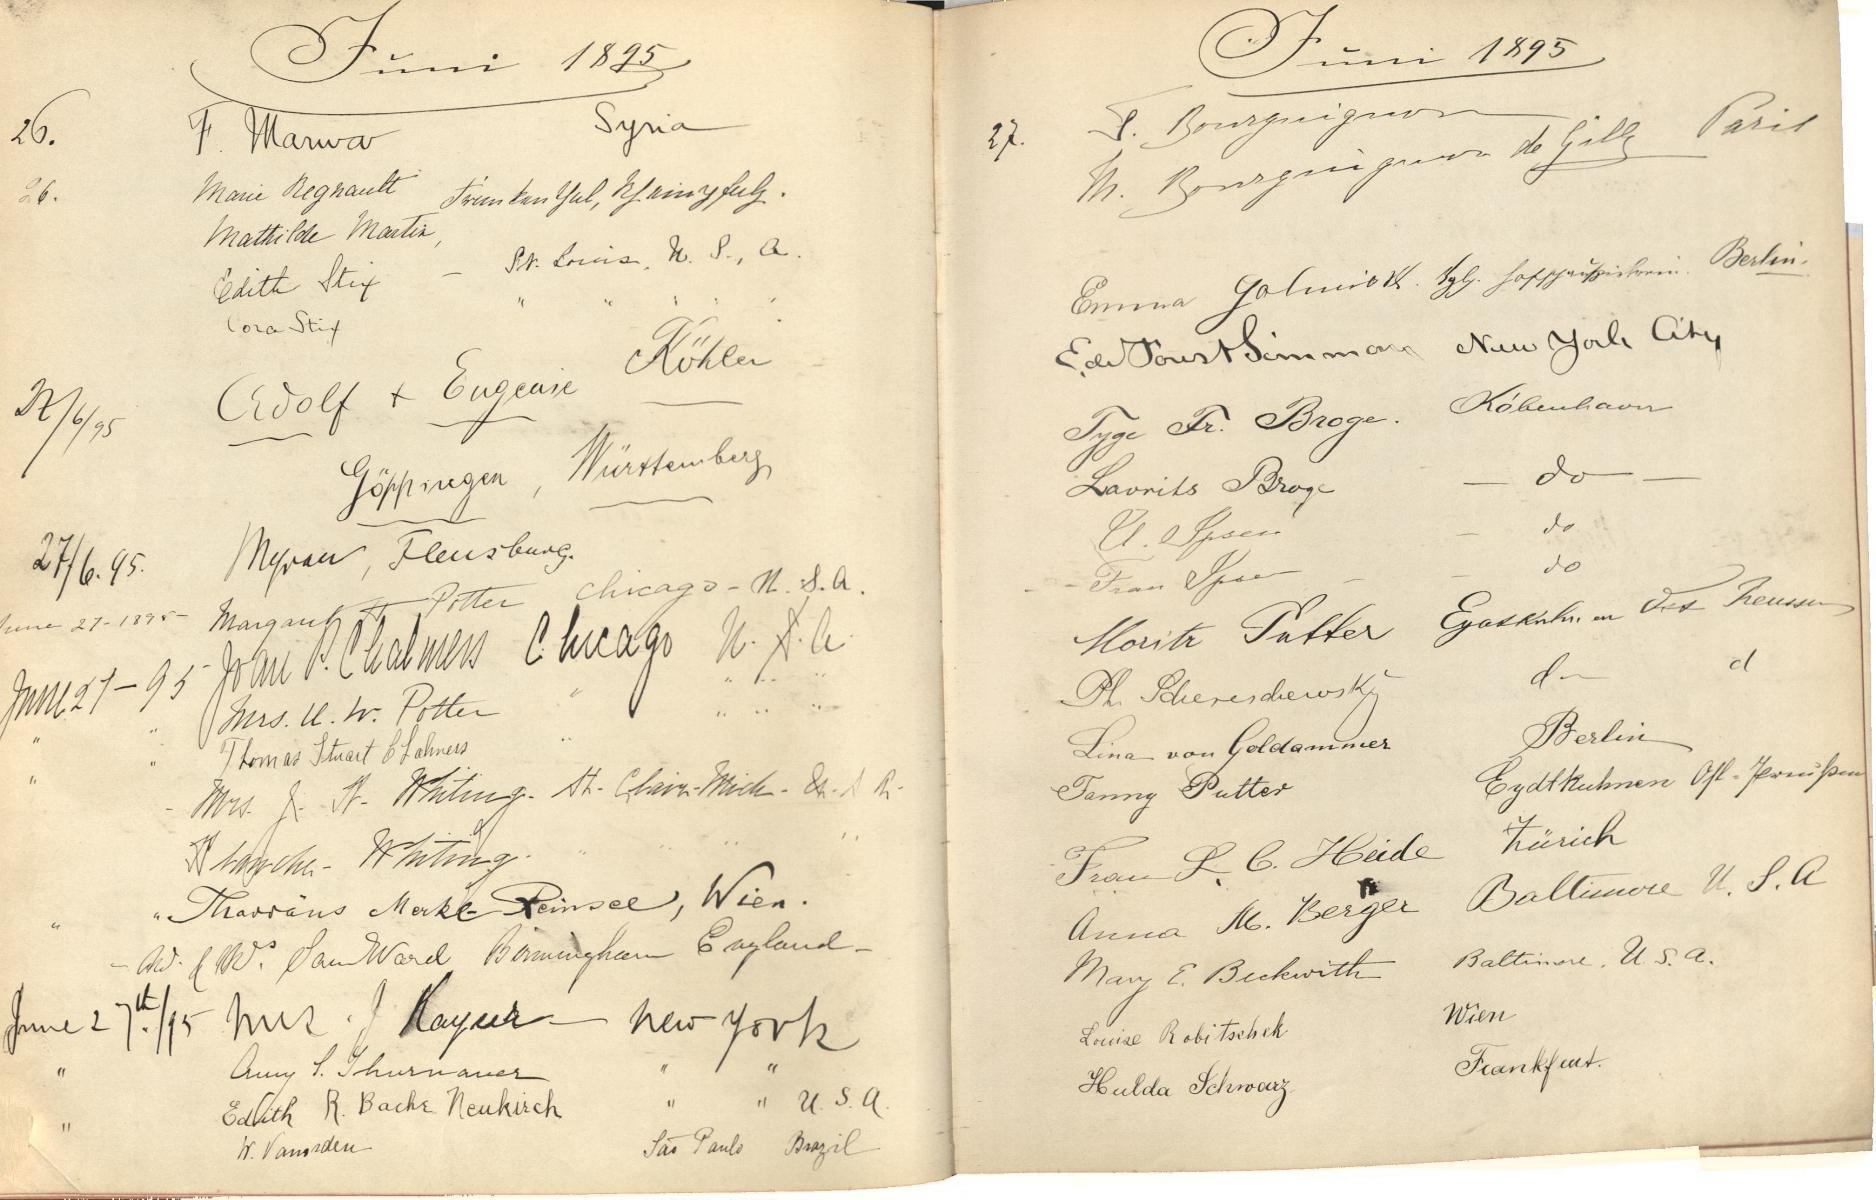 Juni 1895
26. F. Marwa Syria
26. Marie Regnault Frankenthal, Rheinpfalz.
Mathilde Martin,
Edith Stix - St. Louis, U. S., A.
Cora Stix " " " " "
27/6/95 Adolf + Eugenie Köhler
Göppingen, Württemberg
27/6. 95. Flensburg.
June 27-1895- Margaret Potter Chicago - U. S. A.
June 27-95 Joan P. Chalmers Chicago U. S. A.
" " Mrs. U. W. Potter " " " "
" " Thomas Stuart Chalmers " " " "
- Mrs. J. Whiting. St. Clair-Mich-
Blanche- Whiting. " " " "
" " Wien.
- Sam Ward Birmingham England-
June 27th./95 Mrs. J Kayser - New York
" Amy S. Thurnauer " "
Edith R. Bachr Neukirch " " U. S. A.
" W. São Paulo Brazil
Juni 1895
27. F. Bourguignon
M. Bourguignon de Paris
Emma Berlin.
E. de Forest Simmons New York City
Tyge Fr. Broge. København
Lavrits Broge - do -
U. Ipsen - do
- Frau Ipsen - - do
Moritz Putter Ost Preussen
Ph. Schereschewsky d- d
Lina von Goldammer Berlin
Fanny Putter Eydtkuhnen Ost-Preußen
Frau L. C. Heide Zürich
Anna M. Berger Baltimore U. S. A
Mary E. Beckwith Baltimore, U. S. A.
Louise Robitschek Wien
Hulda Schwarz Frankfurt.